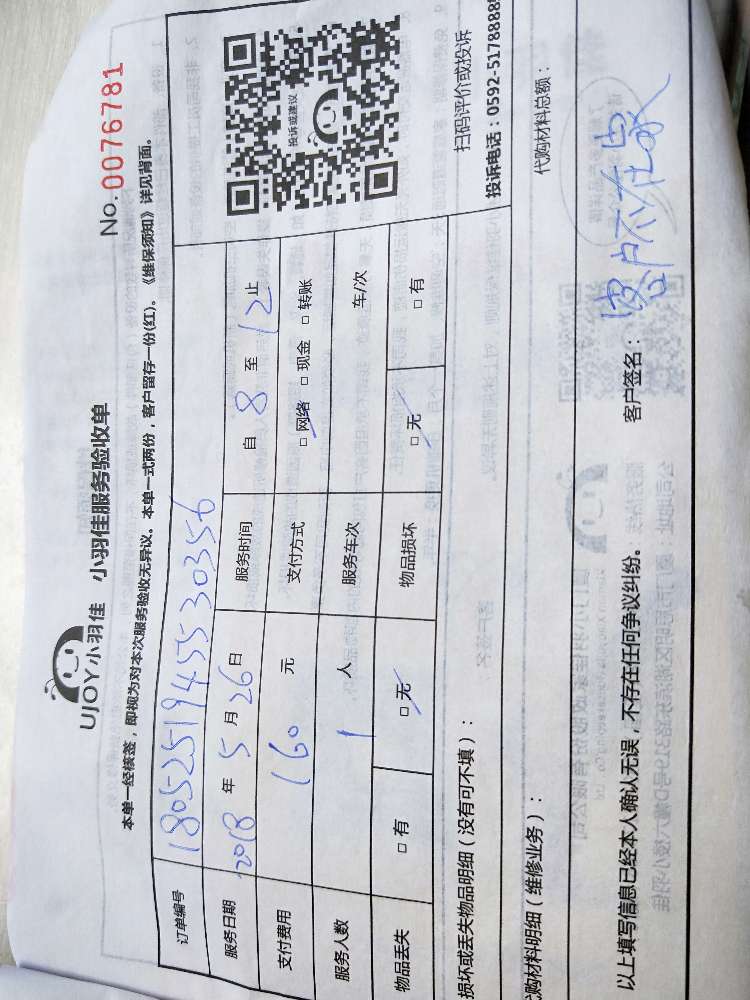 UJOY小羽佳 小羽佳服务验收单
No.0076781
本单一经核签，即视为对本次服务验收无异议。本单一式两份，客户留存一份(红)。《维保须知》详见背面。
订单编号 18052519455530356
服务日期 2018 年 5 月 26 日 服务时间 自 8 至 12 止
支付费用 160 元 支付方式 □ 网络 □ 现金 □ 转账
服务人数 1 人 服务车次 车/次
物品丢失 □ 有 □ 无 物品损坏 □ 无 □ 有
投诉或建议
扫码评价或投诉
投诉电话：0592-5178888
损坏或丢失物品明细（没有可不填）：
代购材料明细（维修业务）： 代购材料总额：
以上填写信息已经本人确认无误，不存在任何争议纠纷。 客户签名： 客户不在家